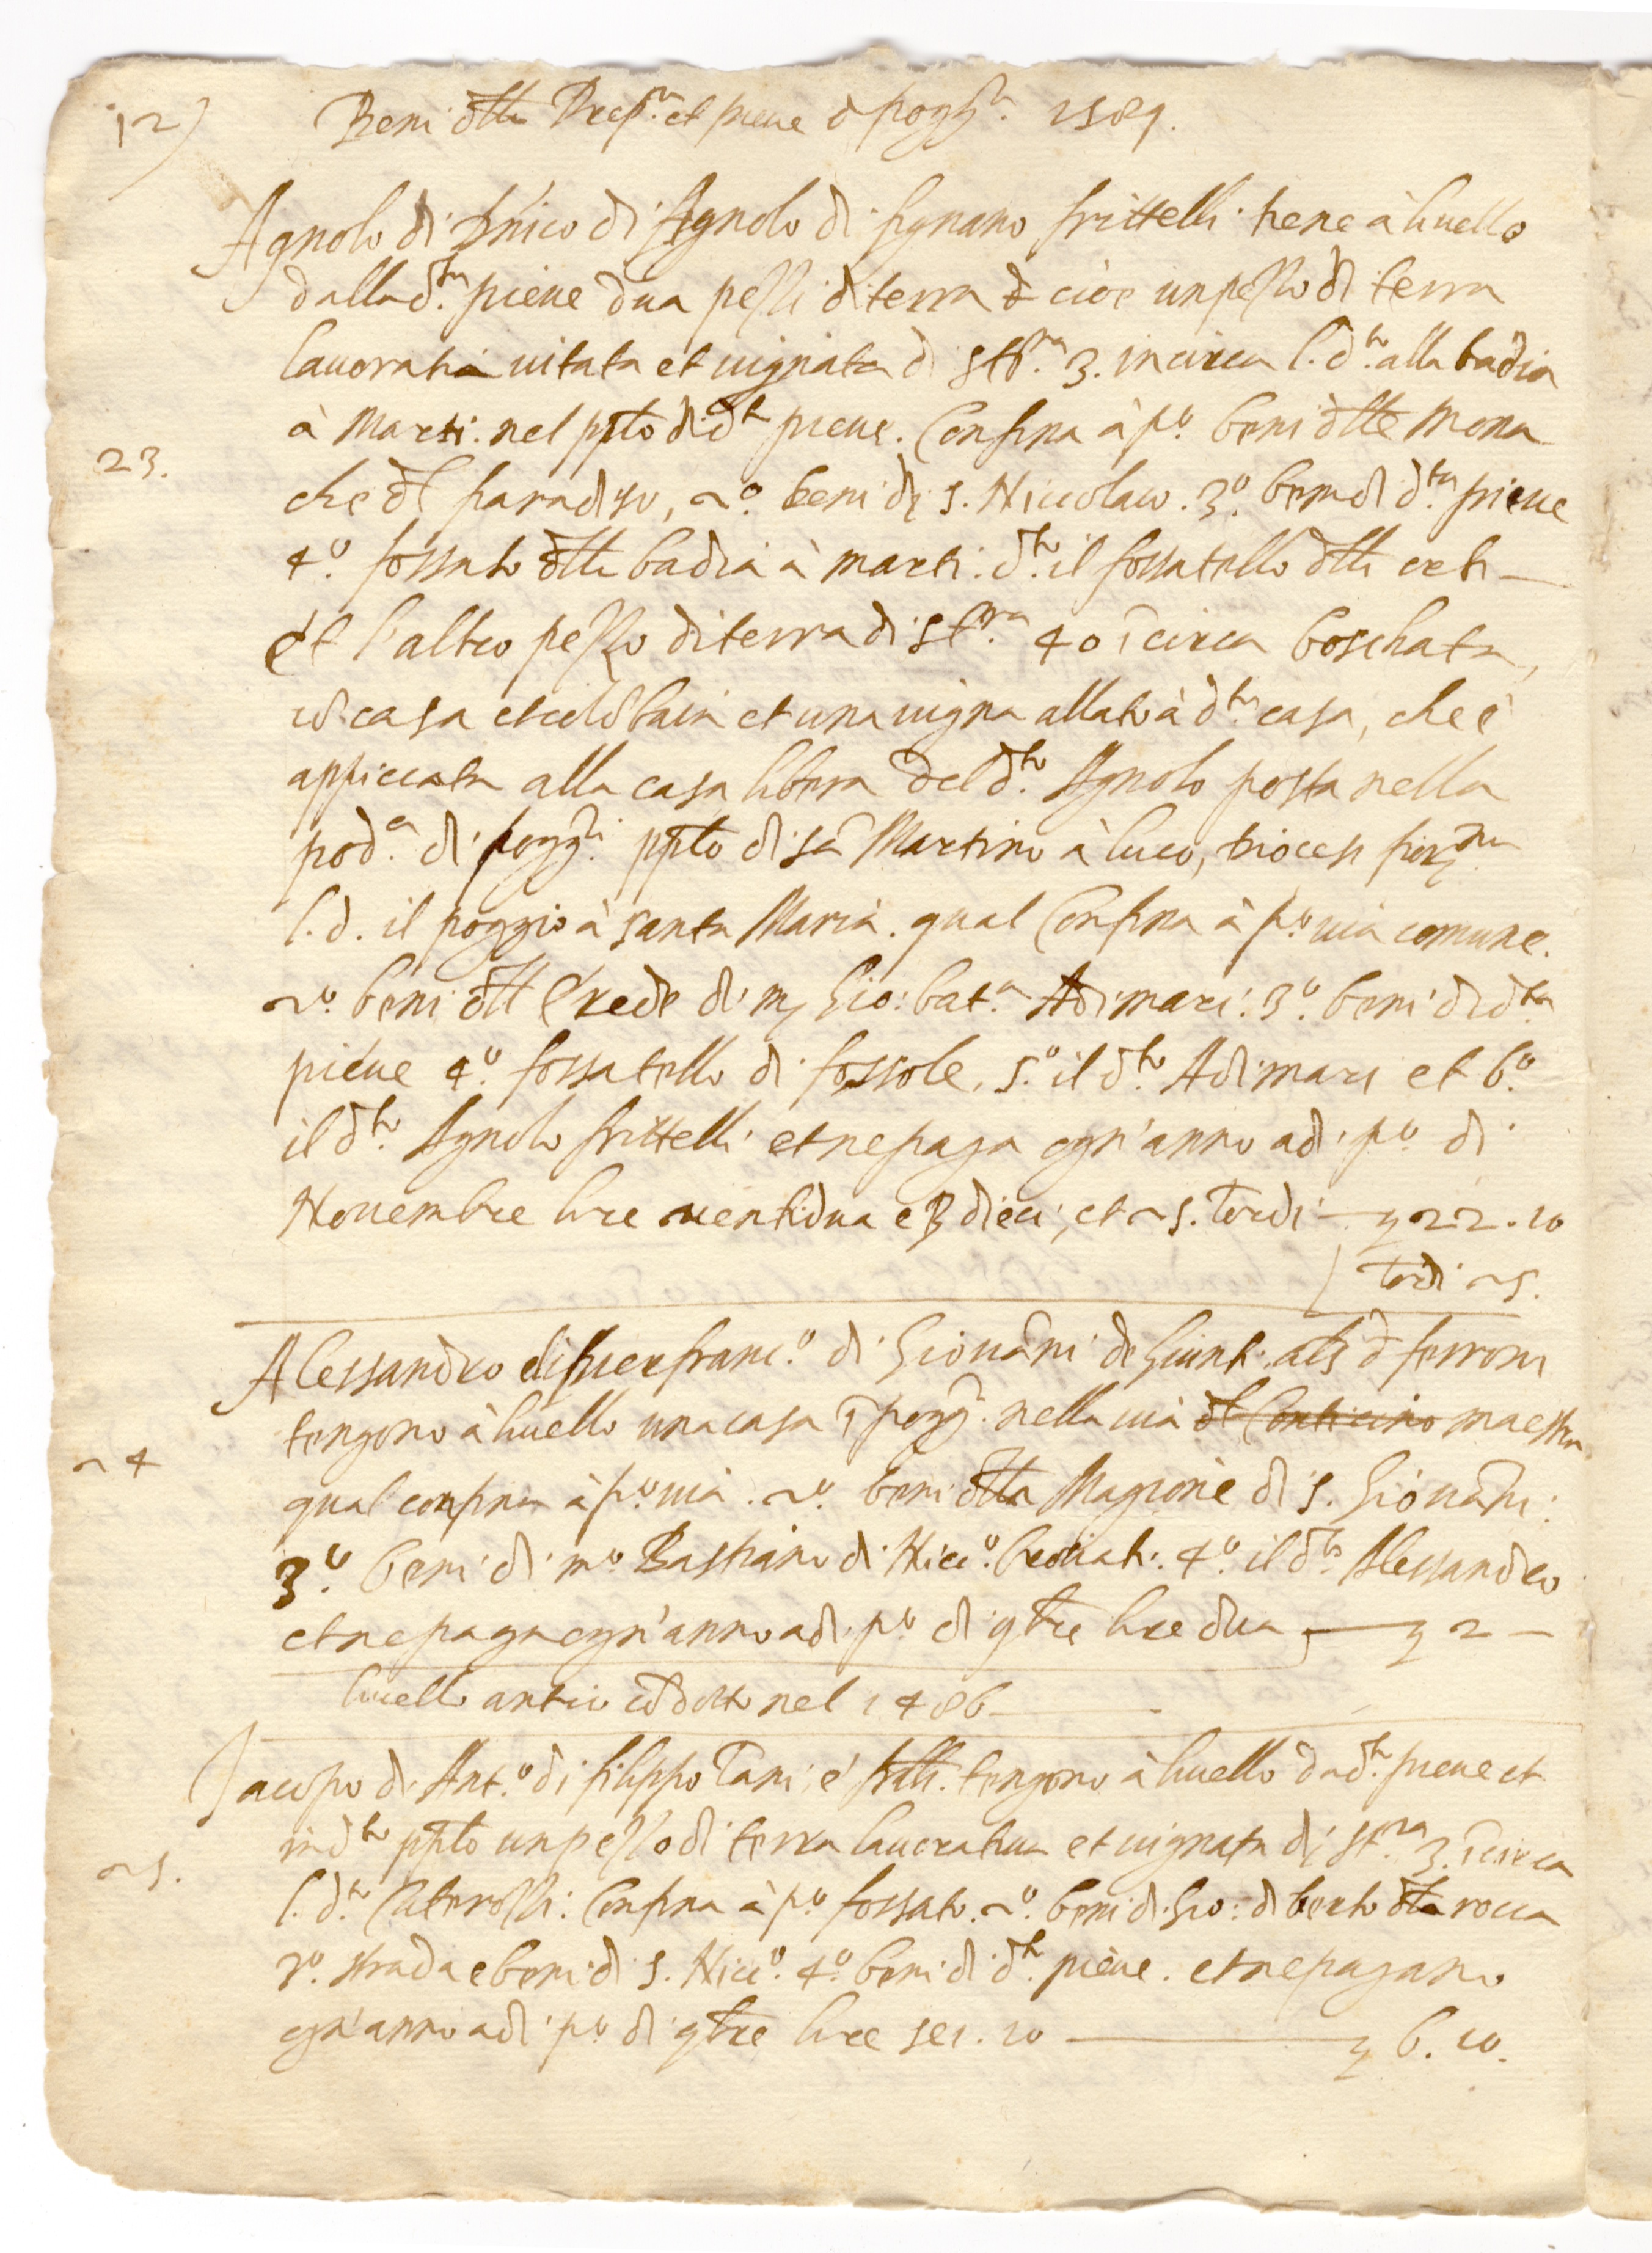 12)
Beni dlla Prep.ra et pieve d pogg.i 1589.
Agnolo di Dnico di Agnolo di fignano frittelli tiene à livello
dalla d.ta pieve dua pezzi di terra cioè un pezzo di terra
lavoratia vitata et vignata di st.ra 3. incirca l. d.to alla badia
à Marti. nel pplo di d.ta pieve. Confina à p.o beni dlle Mona
23.
che dl paradiso, 2.o beni di S. Niccolaio. 3.o beni di d.ta pieve
4.o fossato dlla badia à marti. d.to il fossatello dlli
et l'altro pezzo di terra di st.ra 40 īcirca boschata,
cō casa et colōbaia et una vigna allato à d.ta casa, che è
appiccata alla casa libera del d.to Agnolo posta nella
pod.a di pogg.i pplo di sā Martino à luco, diocesi fior.na
l. d. il poggio à santa Maria. qual Confina à p.o via comune.
2.o beni dll Erede di m Gio: bat.a Adimari: 3.o beni di d.ta
pieve 4.o fossatello di fossole. 5.o il d.to Adimari et 6.o
il d.to Agnolo frittelli et ne paga ogn'anno adi p.o di
Novembre lire ventidua e β dieci, et 25. Tordi — 22. 10
Tordi 25.
Alessandro di pierfranc.o di Giovāni di Giunt. als d ferroni
tengono à livello una casa ī pogg.i nella via dl Conticino maestra
24
qual confina à p.o via. 2.o beni dlla Magione di S. Giovāni:
3.o beni di m.o Bastiano di Nicc.o 4.o il d.to Alessandro
et ne paga ogn'anno adi p.o di 9bre lire dua — 2 —
livello antico cōdotto nel 1486 —
Jacopo di Ant.o di filippo Tani e frlli. tengono à livello da d.ta pieve et
in d.to pplo un pezzo di terra lavoratiua et vignata di st.ra 3. īcirca
25.
l. d.to Confina à p.o fossato. 2.o beni di Gio: di berto dlla rocca
3.o strada e beni di S. Nicc.o 4.o beni di d.ta pieve. et ne pagano
ogn'anno adi p.o di 9bre lire sei. 10 — 6. 10.